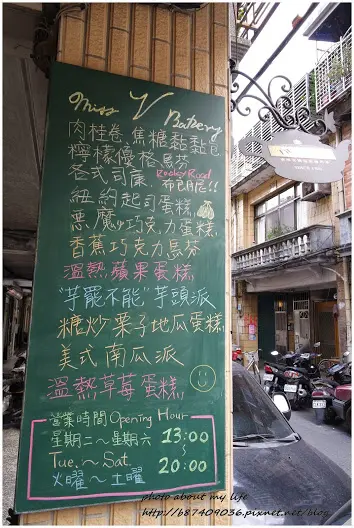 Miss V Bakery
肉桂卷 焦糖黏黏包
檸檬優格馬芬
Rocky Road
各式司康、布朗尼!!
紐約起司蛋糕
惡魔巧克力蛋糕
香蕉巧克力馬芬
溫熱蘋果蛋糕
"芋罷不能"芋頭派
糖炒栗子地瓜蛋糕
美式南瓜派
溫熱草莓蛋糕
營業時間 Opening Hour
星期二~星期六 13:00
Tue.~Sat. ~
火曜~土曜 20:00
photo about my life
http://b87409036.pixnet.net/blog